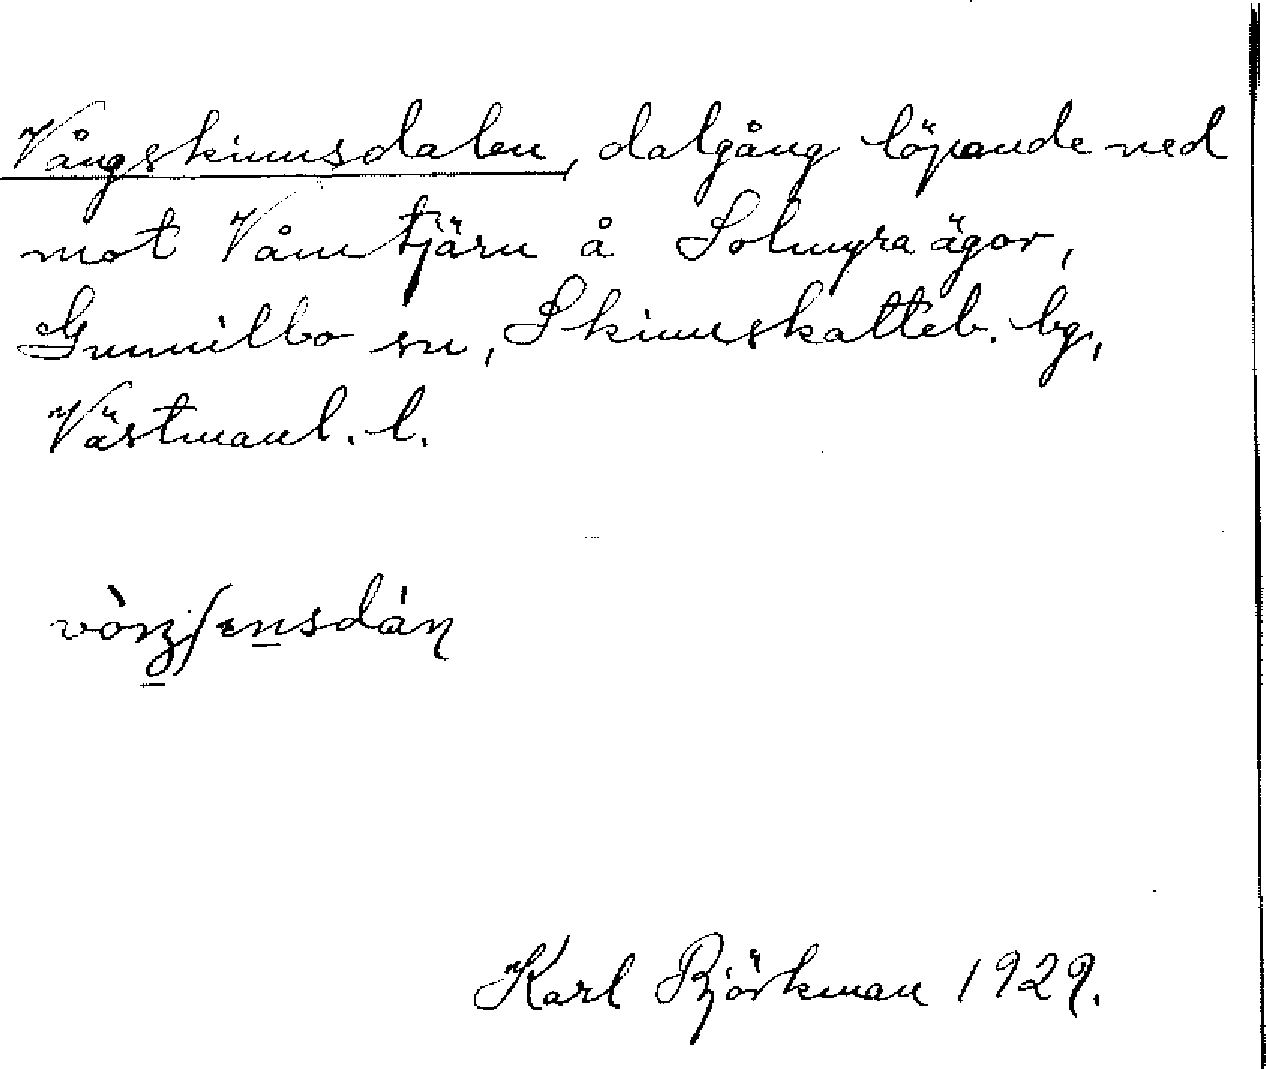 Vångskinnsdalen, dalgång löpande ned
mot Våmtjärn å Solmyra ägor,
Gunnilbo sn, Skinnskatteb. bg,
Västmanl. l.
Karl Björkman 1929.